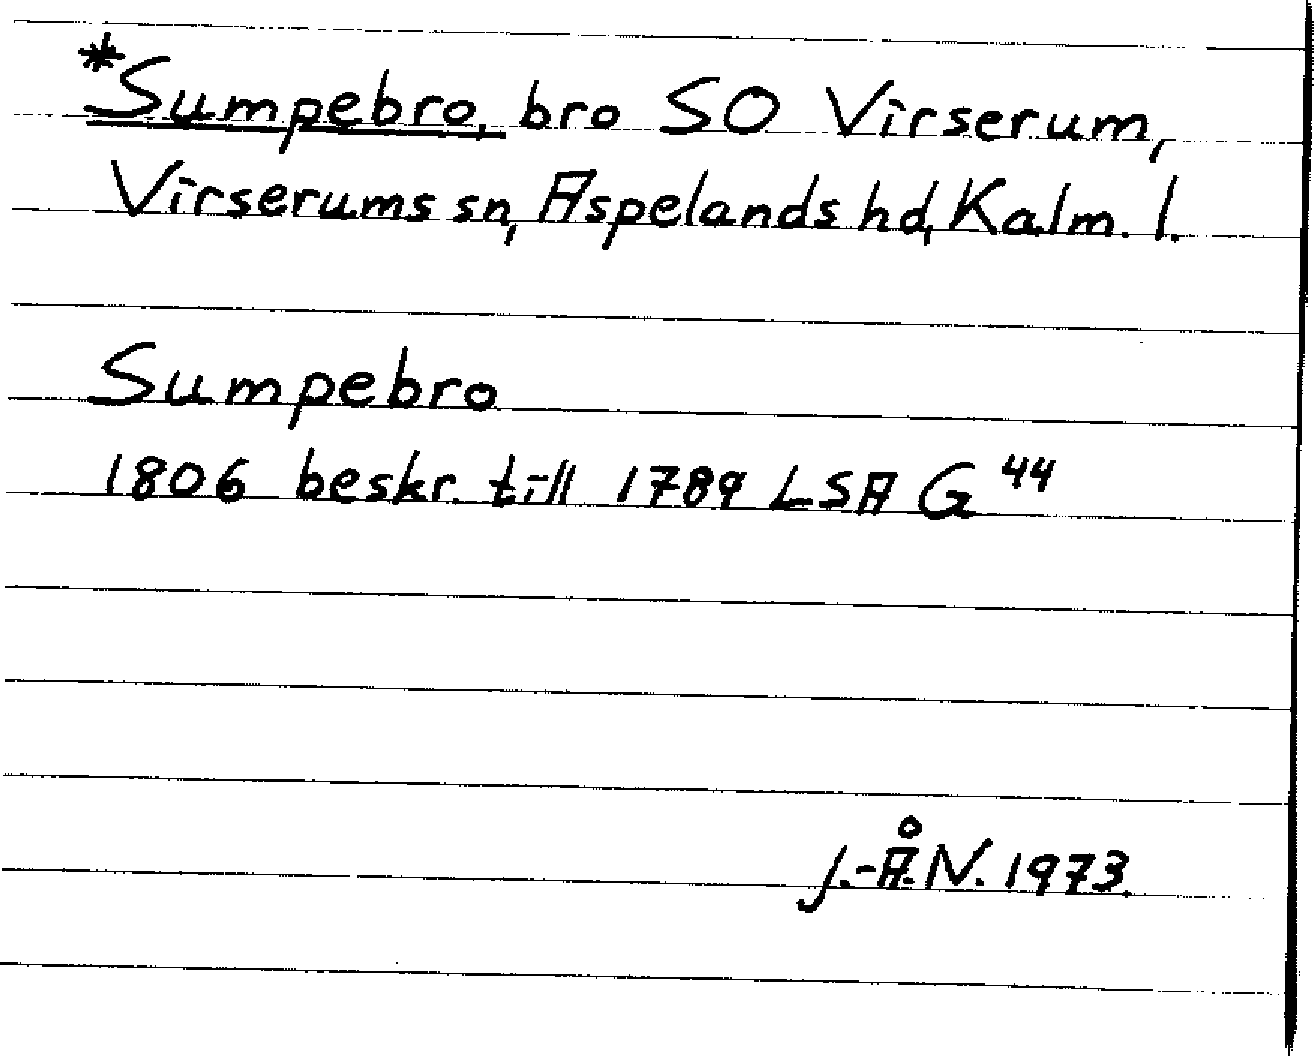 *Sumpebro, bro SO Virserum,
Virserums sn, Aspelands hd, Kalm. l.
Sumpebro
1806 beskr. till 1789 LSA G 44
J.-Å.N. 1973.